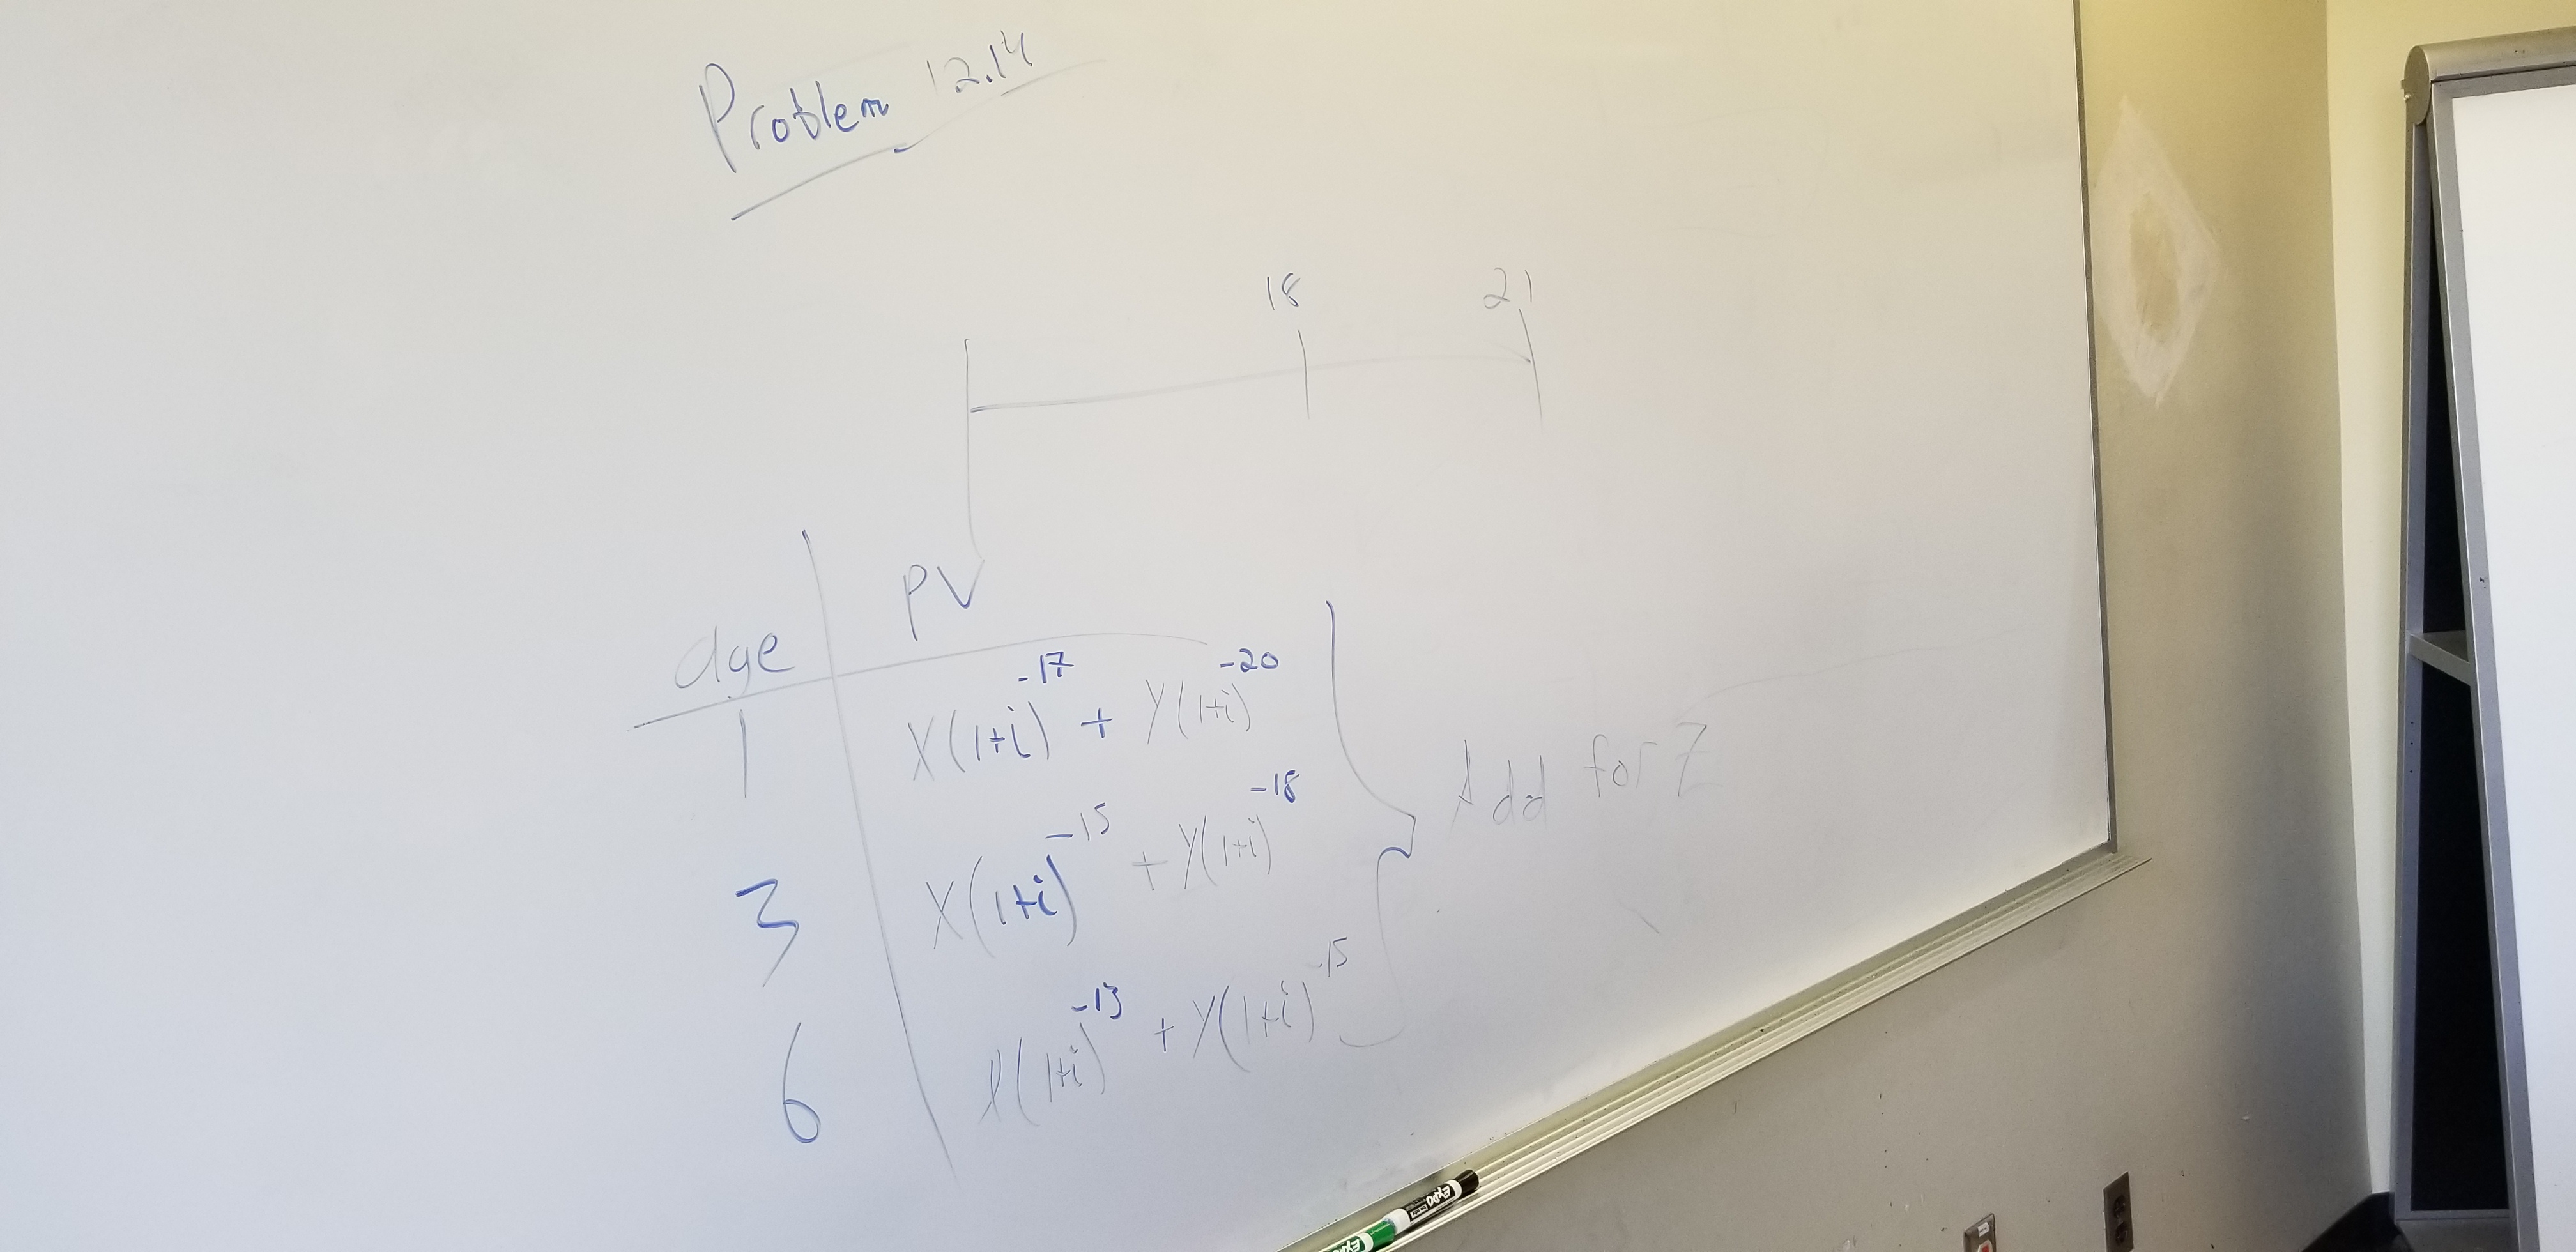 Problem 12.14
18 21
PV
age
1 X(1+i)^-17 + Y(1+i)^-20
3 X(1+i)^-15 + Y(1+i)^-18
6 X(1+i)^-13 + Y(1+i)^-15
Add for Z
EXPO
EXPO